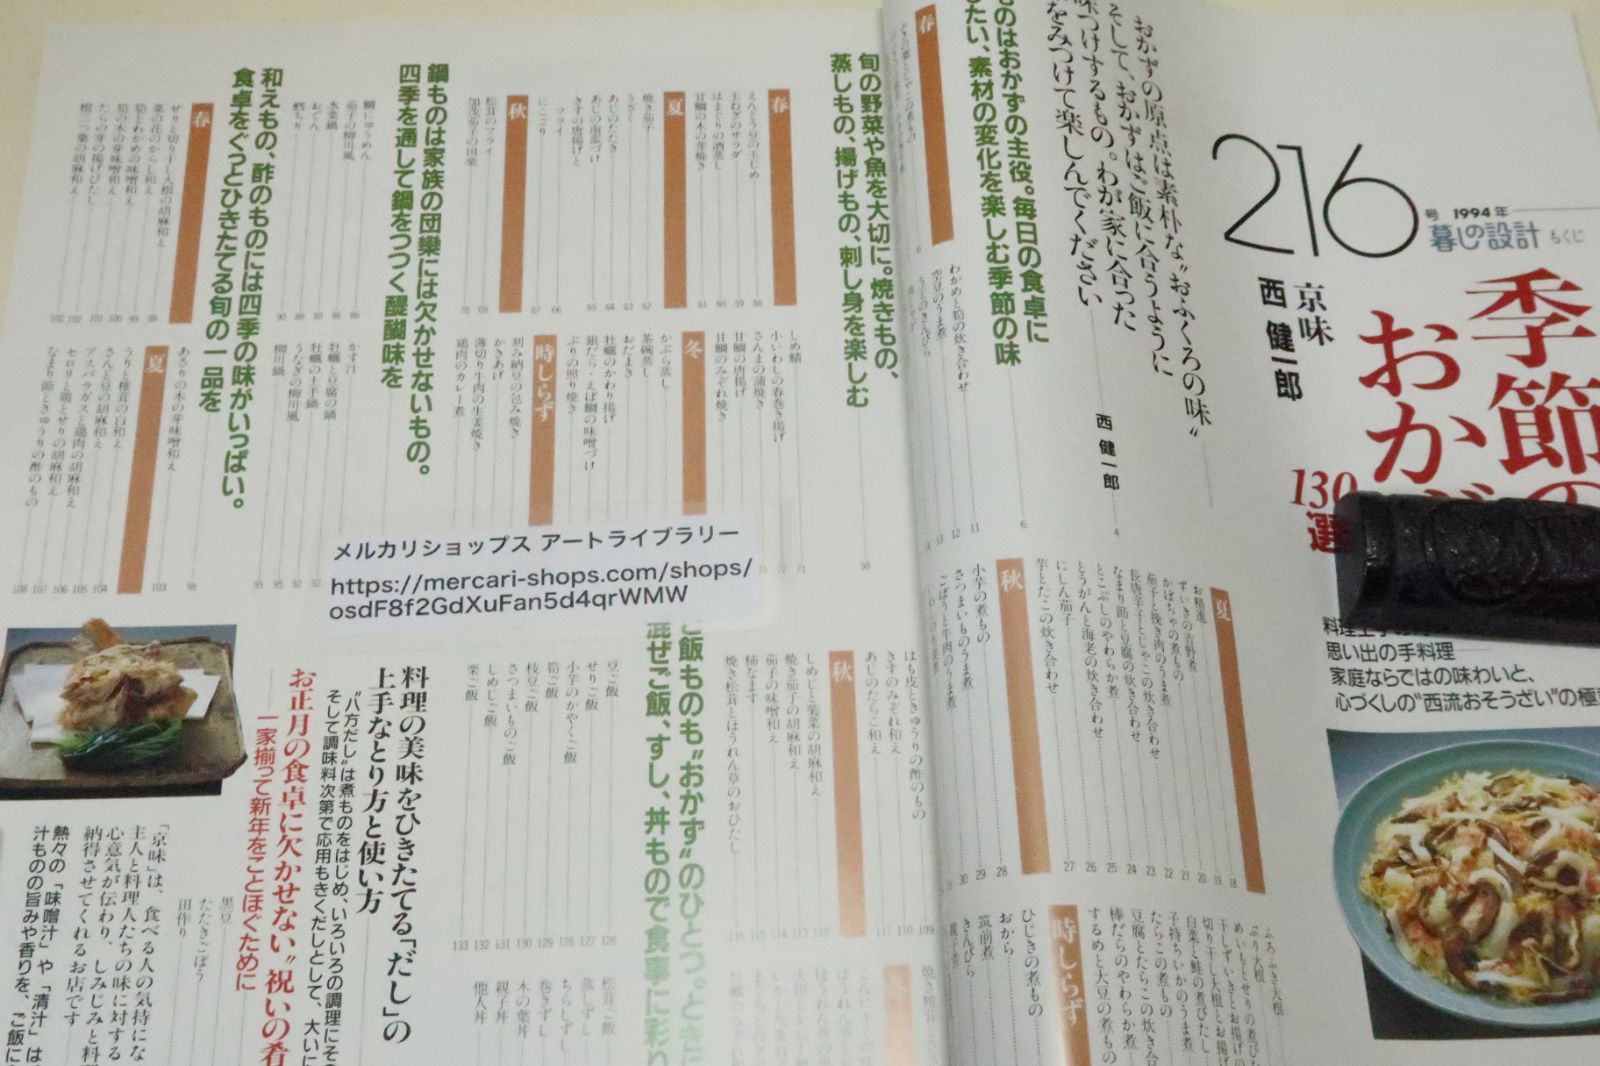 216
号 1994年
暮しの設計 もくじ
季節の
おかず
130
選
京味
西 健一郎
思い出の手料理
家庭ならではの味わいと、
心づくしの"西流おそうざい"の極
おかずの原点は素朴な"おふくろの味"
そして、おかずはご飯に合うように
味つけするもの。わが家に合った
をみつけて楽しんでください
西 健一郎
4
ものはおかずの主役。毎日の食卓に
たい、素材の変化を楽しむ季節の味
6
春
わかめと筍の炊き合わせ
11
空豆のうま煮
12
うどのきんぴら
13
夏
お精進
18
ずいきの吉野煮
19
かぼちゃの煮もの
20
茄子と挽き肉のうま煮
21
長唐辛子とじゃこの炊き合わせ
22
なまり節と豆腐の炊き合わせ
23
とこぶしのやわらか煮
24
とうがんと海老の炊き合わせ
25
にしん茄子
26
芋とたこの炊き合わせ
27
秋
小芋の煮もの
28
さつまいものうま煮
29
ごぼうと牛肉のうま煮
30
ふろふき大根
ぶり大根
めいもとせりの煮びた
干しずいきとお揚げの
切り干し大根とお揚げ
白菜と鮭の煮びたし
子持ちいかのうま煮
たらこの煮もの
豆腐とたらこの炊き合
棒だらのやわらか煮
するめと大豆の煮もの
時しらず
ひじきの煮もの
おから
筑前煮
きんぴら
旬の野菜や魚を大切に。焼きもの、
蒸しもの、揚げもの、刺し身を楽しむ
58
春
えんどう豆の玉じめ
58
玉ねぎのサラダ
59
はまぐりの酒蒸し
60
甘鯛の木の芽焼き
61
夏
焼き茄子
62
うざく
63
あじのたたき
64
あじの南蛮づけ
65
きすの唐揚げと
フライ
66
にこごり
67
秋
松茸のフライ
69
加茂茄子の田楽
70
しめ鯖
71
小いわしの春巻き揚げ
72
さんまの蒲焼き
73
甘鯛の唐揚げ
甘鯛のみぞれ焼き
冬
かぶら蒸し
茶碗蒸し
おだまき
牡蠣のかわり揚げ
銀だら・えぼ鯛の味噌づけ
ぶりの照り焼き
時しらず
刻み納豆の包み焼き
かきあげ
薄切り牛肉の生姜焼き
鶏肉のカレー煮
鍋ものは家族の団欒には欠かせないもの。
四季を通して鍋をつつく醍醐味を
鯛にゅうめん
86
茄子の柳川風
86
水菜鍋
89
おでん
89
鱈ちり
90
かす汁
牡蠣と豆腐の鍋
92
牡蠣の土手鍋
92
うなぎの柳川風
95
柳川鍋
95
和えもの、酢のものには四季の味がいっぱい。
食卓をぐっとひきたてる旬の一品を
98
春
せりと切り干し大根の胡麻和え
98
菜の花のからし和え
99
筍とわかめの味噌和え
100
筍の木の芽味噌和え
101
たらの芽の揚げびたし
102
根三つ葉の胡麻和え
102
あさりの木の芽味噌和え
103
夏
うりと椎茸の白和え
104
さんど豆の胡麻和え
105
アスパラガスと鶏肉の胡麻和え
106
セロリと鶏とせりの胡麻和え
107
なまり節ときゅうりの酢のもの
108
はも皮ときゅうりの酢のもの
109
きすのみぞれ和え
110
あじのたらこ和え
111
秋
しめじと菊菜の胡麻和え
112
焼き茄子の胡麻和え
113
茄子の味噌和え
114
柿なます
115
焼き松茸とほうれん草のおひたし
116
冬
ご飯ものも"おかず"のひとつ。ときに
混ぜご飯、すし、丼もので食事に彩り
豆ご飯
126
せりご飯
127
小芋のかやくご飯
128
筍ご飯
129
枝豆ご飯
130
さつまいものご飯
131
しめじご飯
132
栗ご飯
133
松茸ご飯
蒸しずし
ちらしずし
巻きずし
木の葉丼
親子丼
他人丼
料理の美味をひきたてる「だし」の
上手なとり方と使い方
"八方だし"は煮ものをはじめ、いろいろの調理にその
そして調味料次第で応用もきくだしとして、大いに
お正月の食卓に欠かせない"祝いの肴
一家揃って新年をことほぐために
黒豆
たたきごぼう
田作り
「京味」は、食べる人の気持にな
主人と料理人たちの味に対する
心意気が伝わり、しみじみと料
納得させてくれるお店です
熱々の「味噌汁」や「清汁」は
汁ものの旨みや香りを、ご飯に
メルカリショップス アートライブラリー
https://mercari-shops.com/shops/
osdF8f2GdXuFan5d4qrWMW